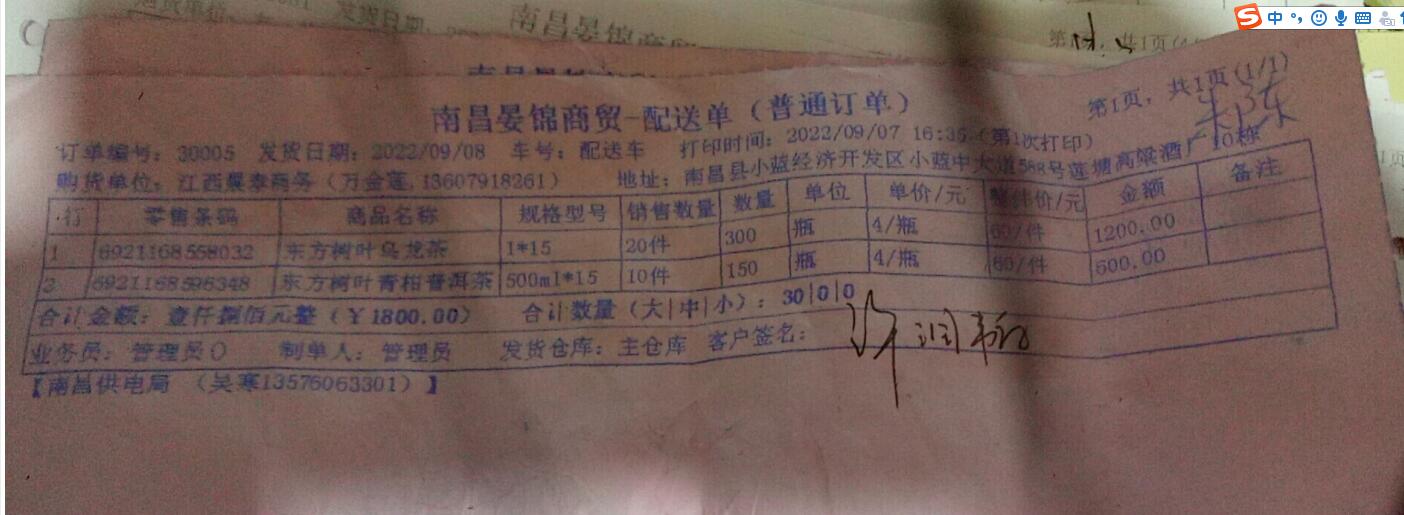 南昌晏锦商贸-配送单（普通订单）
第1页，共1页(1/1)
订单编号：30005 发货日期：2022/09/08 车号：配送车 打印时间：2022/09/07 16:35（第1次打印）
购货单位：江西 泰商务（万金莲,13607918261） 地址：南昌县小蓝经济开发区小蓝中大道588号莲塘高粱酒厂10栋
行 零售条码 商品名称 规格型号 销售数量 数量 单位 单价/元 整件价/元 金额 备注
1 6921168558032 东方树叶乌龙茶 1*15 20件 300 瓶 4/瓶 60/件 1200.00
2 6921168596348 东方树叶青柑普洱茶 500ml*15 10件 150 瓶 4/瓶 60/件 600.00
合计金额：壹仟捌佰元整（￥1800.00） 合计数量（大|中|小）：30|0|0
业务员：管理员() 制单人：管理员 发货仓库：主仓库 客户签名：
【南昌供电局 （吴寒13576063301）】